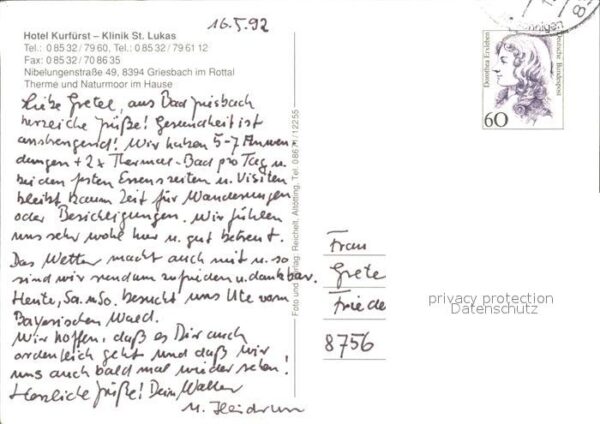 16.5.92
Hotel Kurfürst – Klinik St. Lukas
Tel.: 0 85 32 / 79 60, Tel.: 0 85 32 / 79 61 12
Fax: 0 85 32 / 70 86 35
Nibelungenstraße 49, 8394 Griesbach im Rottal
Therme und Naturmoor im Hause
Liebe Gretel, aus Bad Griesbach
herzliche Grüße! Gesundheit ist
anstrengend! Wir haben 5-7 Anwen-
dungen + 2x Thermal-Bad pro Tag u.
bei den festen Essenszeiten u. Visiten
bleibt kaum Zeit für Wanderungen
oder Besichtigungen. Wir fühlen
uns sehr wohl hier u. gut betreut.
Das Wetter macht auch mit u. so
sind wir rundum zufrieden u. dankbar.
Heute, Sa. u. So. besucht uns Ute vom
Bayerischen Wald.
Wir hoffen, daß es Dir auch
ordentlich geht und daß wir
uns auch bald mal wieder sehen!
Herzliche Grüße! Dein Walter
u. Heidrun
Foto und Verlag: Reichelt, Altötting, Tel. 08671/12255
Dorothea Erxleben
Deutsche Bundespost
60
Frau
Grete
Friede
8756
privacy protection
Datenschutz